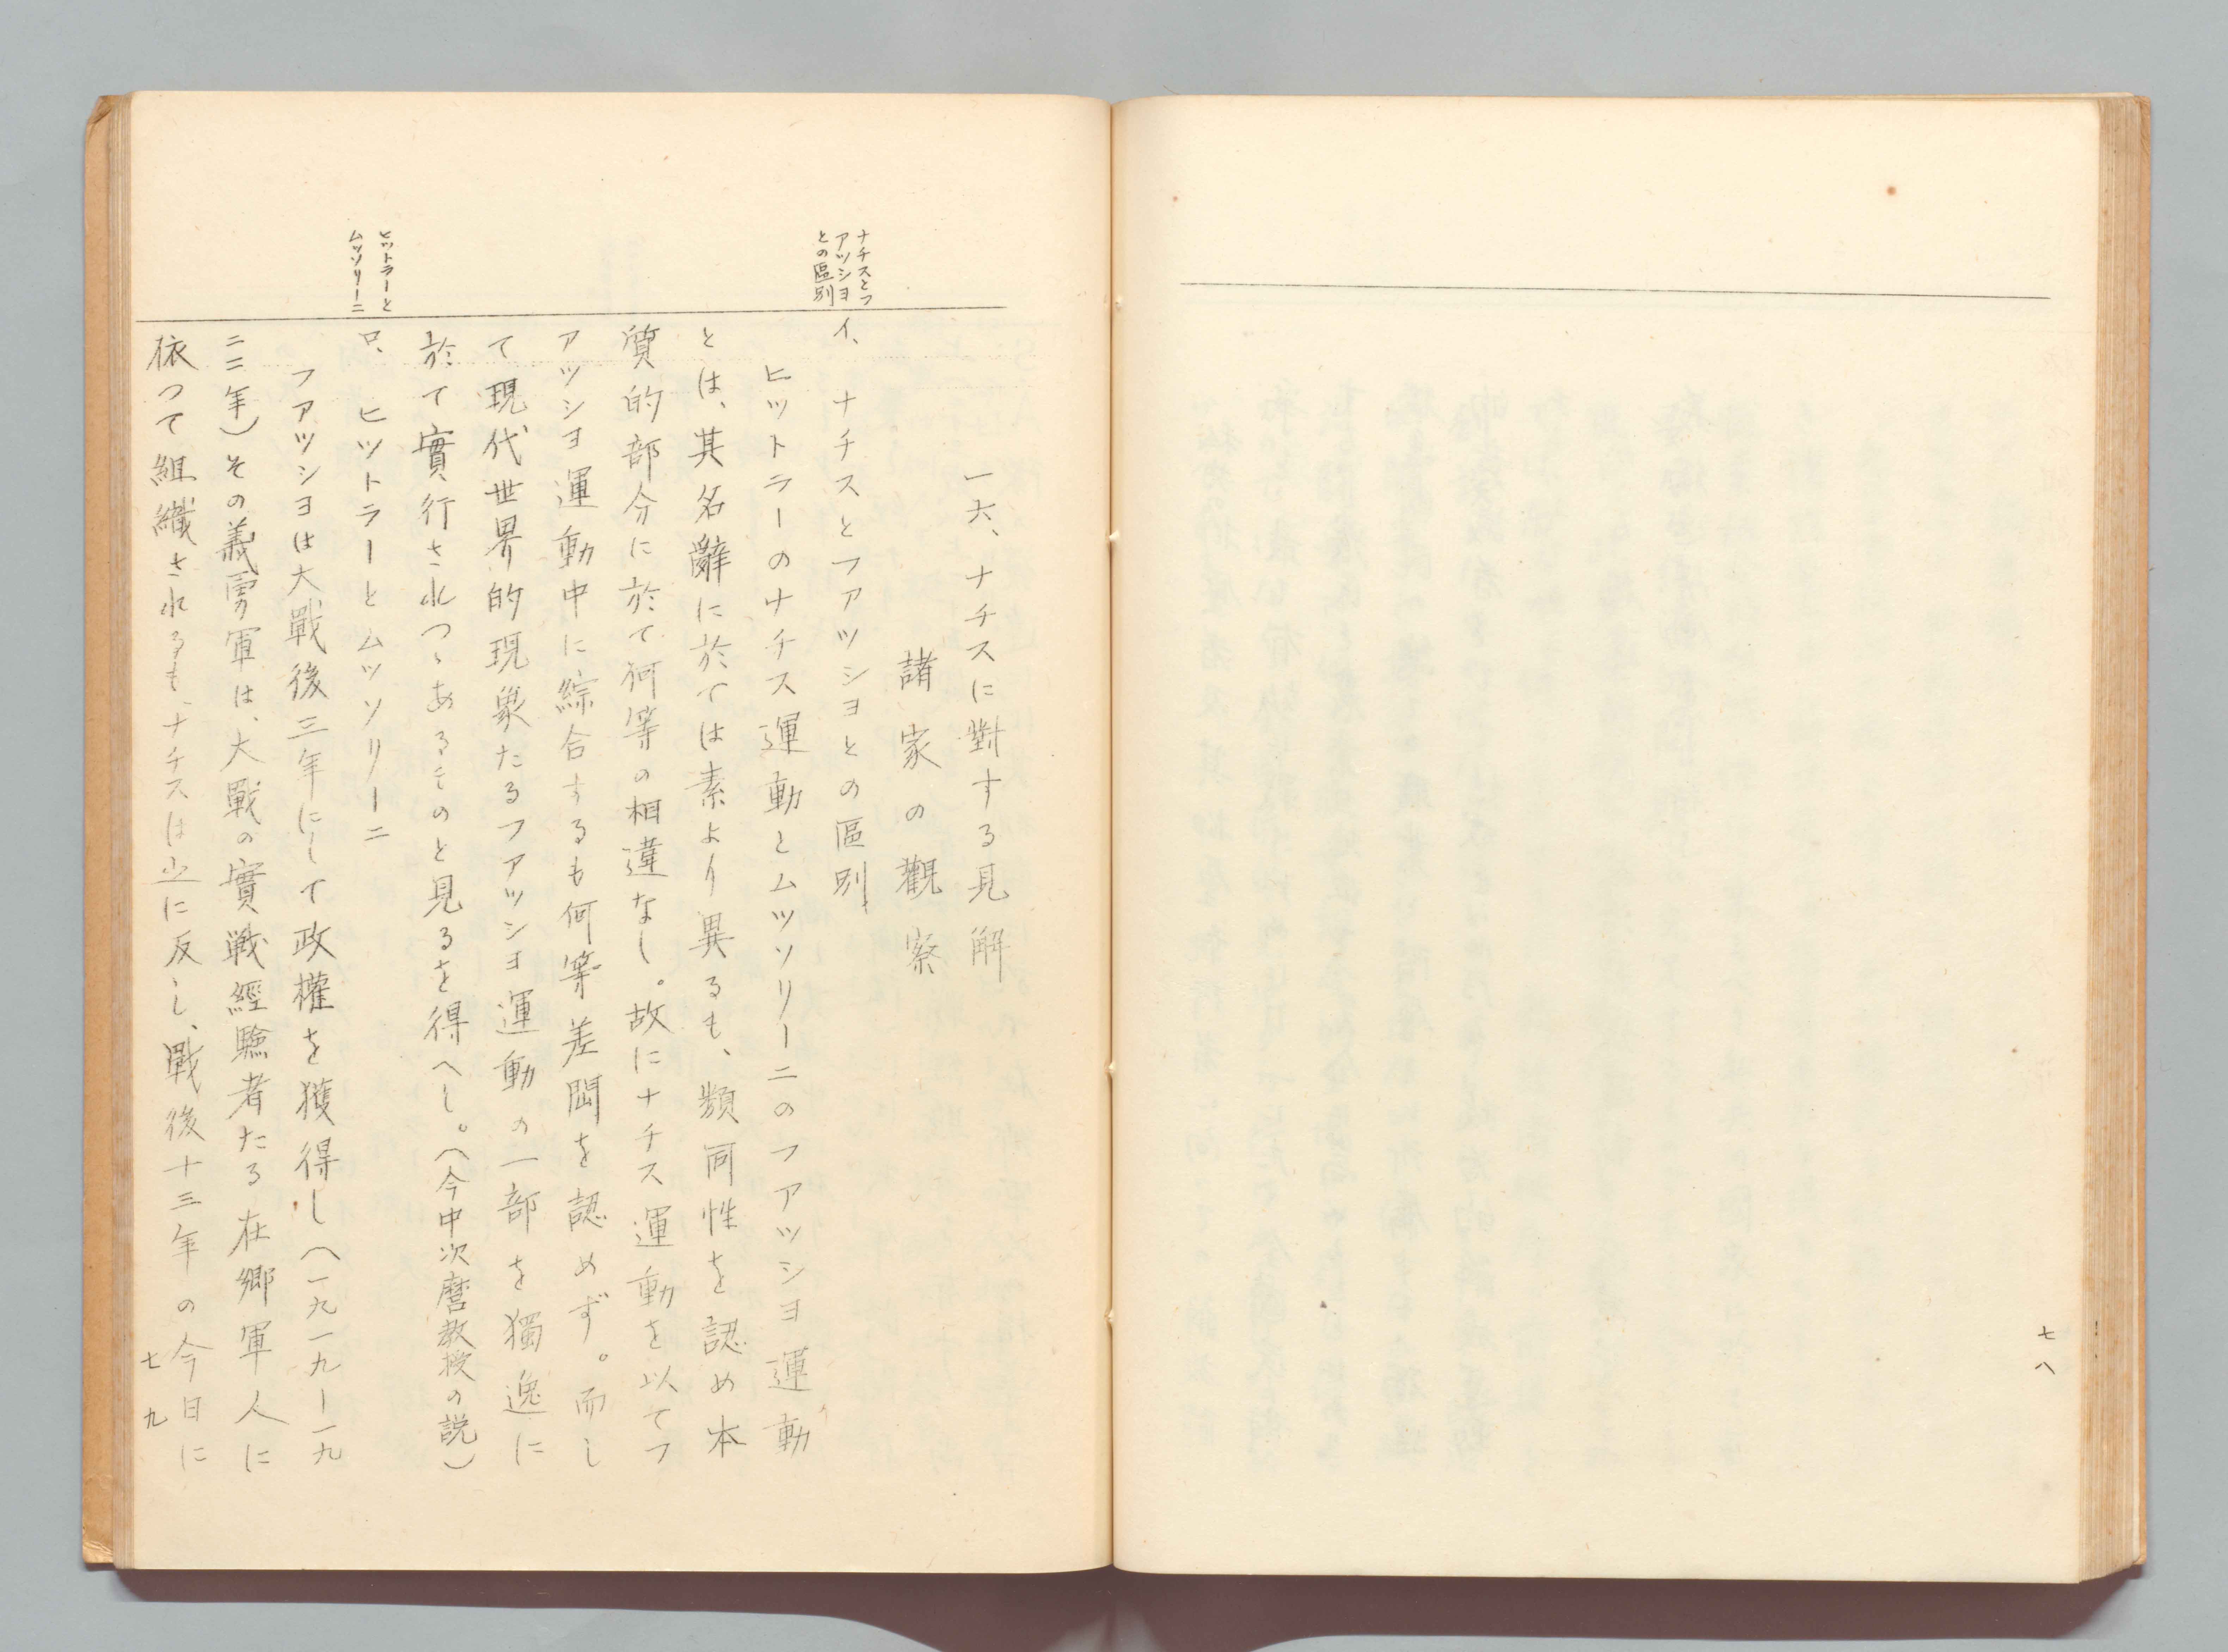 七八
ナチスとフ
アツシヨ
との區別
一六、ナチスに對する見解
諸家の觀察
イ、ナチスとフアツシヨとの區別
ヒットラーのナチス運動とムツソリーニのフアツシヨ運動
とは、其名辭に於ては素より異るも、類同性を認め本
質的部分に於て何等の相違なし。故にナチス運動を以てフ
アツシヨ運動中に綜合するも何等差閊を認めず。而し
て現代世界的現象たるフアツシヨ運動の一部を獨逸に
於て實行されつゝあるものと見るを得へし。(今中次麿教授の説)
ヒットラーと
ムツソリーニ
ロ、ヒツトラーとムツソリーニ
フアツシヨは大戰後三年にして政權を獲得し(一九一九ー一九
二二年)その義勇軍は、大戰の實戦經驗者たる在郷軍人に
依つて組織されるも、ナチスは之に反し、戰後十三年の今日に
七九